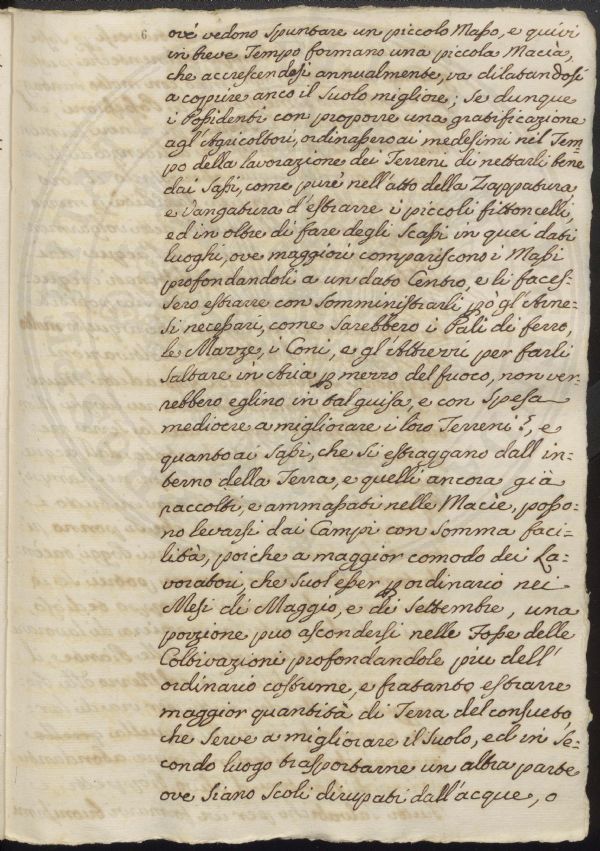 6
ové vedono spuntare un piccolo Masso, e quivi
in breve Tempo formano una piccola Macìa,
che accrescendosi annualmente, va dilatandosi
a copire anco il suolo migliore; se dunque
i Possidenti con proporre una gratificazione
agl'Agricoltori, ordinassero ai medesimi nel Tem=
po della lavorazione dei Terreni di nettarli bene
dai Sassi, come pure nell'atto della Zappatura
e Vangatura d'estrarre i piccoli fittoncelli,
ed in oltre di fare degli Scassi in quei dati
luoghi, ove maggiori compariscono i Massi
profondandoli a un dato Centro, e li faces=
sero estrarre con somministrarli pò gl'Arne=
si necessari, come sarebbero i Pali di ferro,
le Mazze, i Coni, e gl'Attrezzi per farli
saltare in Aria p mezzo del fuoco, non ver=
rebbero eglino in tal guisa, e con spesa
mediocre a migliorare i loro Terreni?, e
quanto ai Sassi, che si estraggano dall'in=
terno della Terra, e quelli ancora già
raccolti, e ammassati nelle Macìe, posso=
no levarsi dai Campi con somma faci=
lità, poiche a maggior comodo dei La=
voratori, che suol esser p ordinario nei
Mesi di Maggio, e di Settembre, una
porzione puo ascondersi nelle Fosse delle
Coltivazioni profondandole piu dell'
ordinario costume, e fratanto estrarre
maggior quantità di Terra del consueto,
che serve a migliorare il suolo, ed in se=
condo luogo trasportarne un altra parte
ove siano Scoli dirupati dall'acque, o